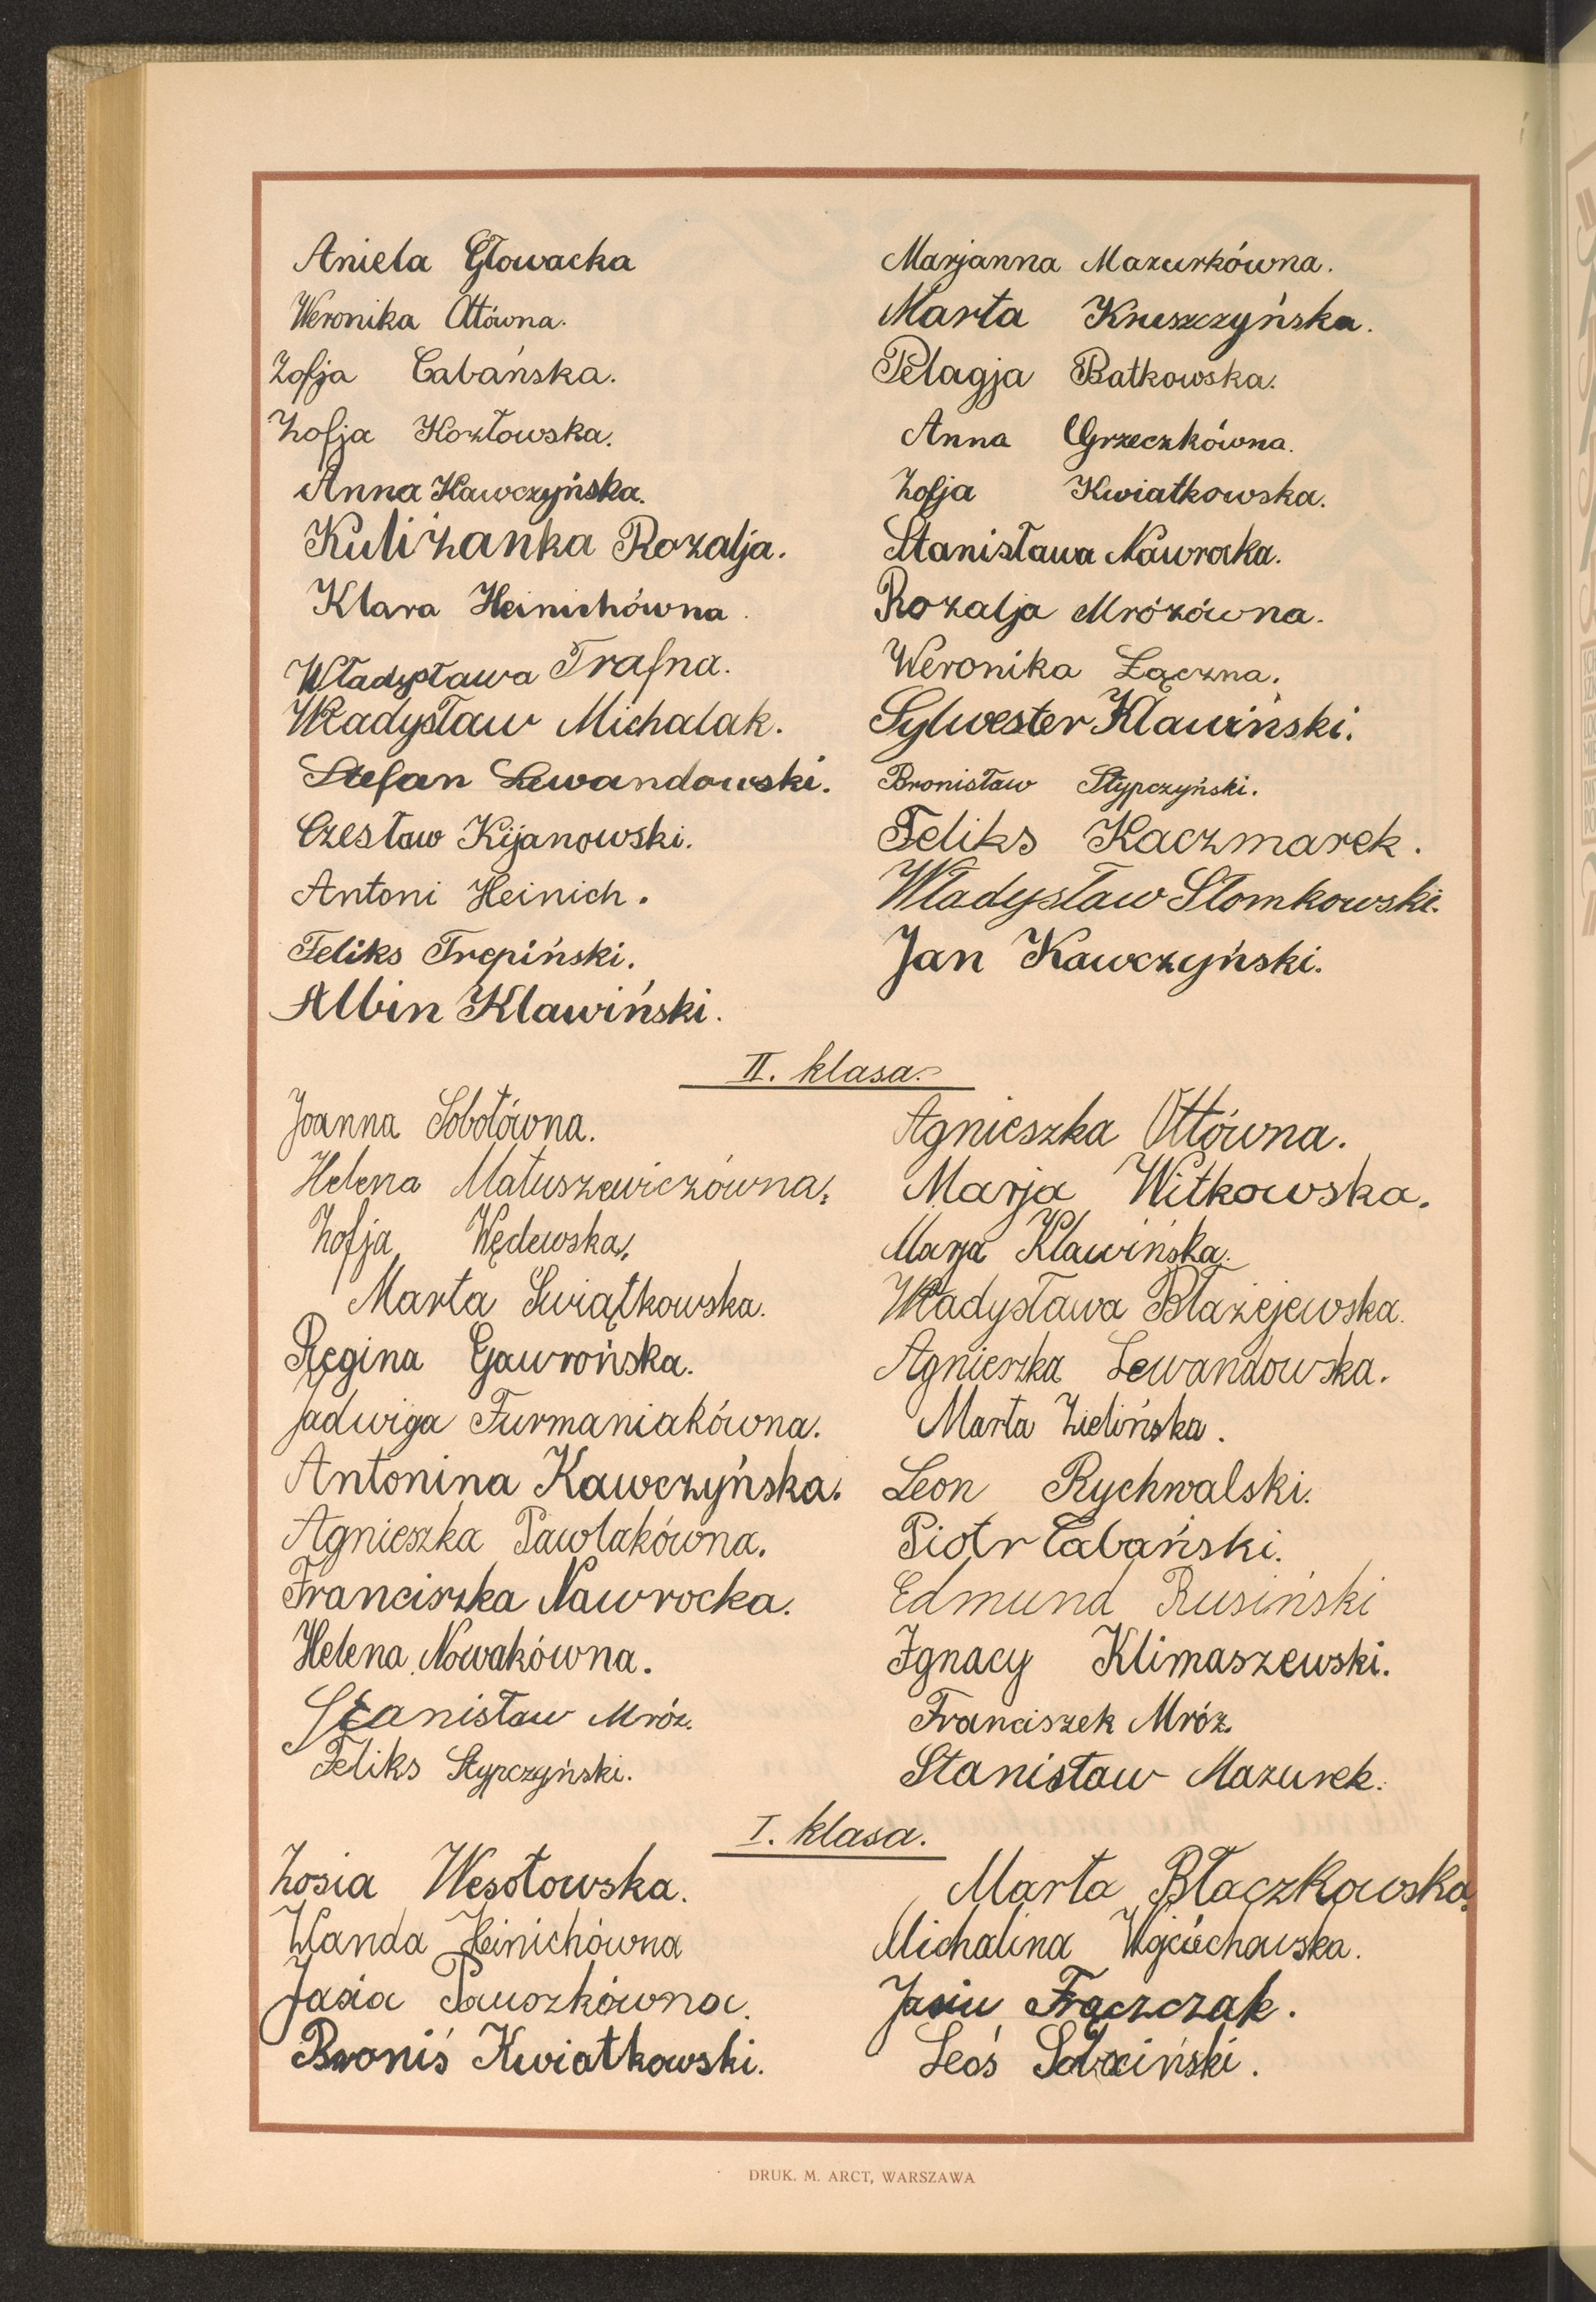 Aniela Głowacka
Weronika Ottówna.
Zofja Cabańska.
Zofja Kozłowska.
Anna Kawczyńska.
Kuliżanka Rozalja.
Klara Heinichówna.
Władysława Trafna.
Władysław Michalak.
Stefan Lewandowski.
Czesław Kijanowski.
Antoni Heinich.
Feliks Trepiński.
Albin Klawiński.
Marjanna Mazurkówna.
Marta Kruszczyńska.
Pelagja Batkowska.
Anna Grzeczkówna.
Zofja Kwiatkowska.
Stanisława Nawrocka.
Rozalja Mrózówna.
Weronika Łączna.
Sylwester Klawiński.
Bronisław Stypczyński.
Feliks Kaczmarek.
Władysław Słomkowski.
Jan Kawczyński.
II. klasa.
Joanna Sobotówna.
Helena Matuszewiczówna.
Zofja Wędewska.
Marta Swiątkowska.
Regina Gawrońska.
Jadwiga Furmaniakówna.
Antonina Kawczyńska.
Agnieszka Pawlakówna.
Franciszka Nawrocka.
Helena Nowakówna.
Stanisław Mróz.
Feliks Stypczyński.
Agnieszka Ottówna.
Marja Witkowska.
Marja Klawińska.
Władysława Błażejewska.
Agnieszka Lewandowska.
Marta Zielińska.
Leon Rychwalski.
Piotr Cabański.
Edmund Rusiński
Ignacy Klimaszewski.
Franciszek Mróz
Stanisław Mazurek.
I. klasa.
Zosia Wesołowska.
Wanda Heinichówna
Jasia Pauszkówna.
Broniś Kwiatkowski.
Marta Błaczkowska.
Michalina Wojciechowska.
Jasiu Frączczak.
Leoś
DRUK. M. ARCT, WARSZAWA